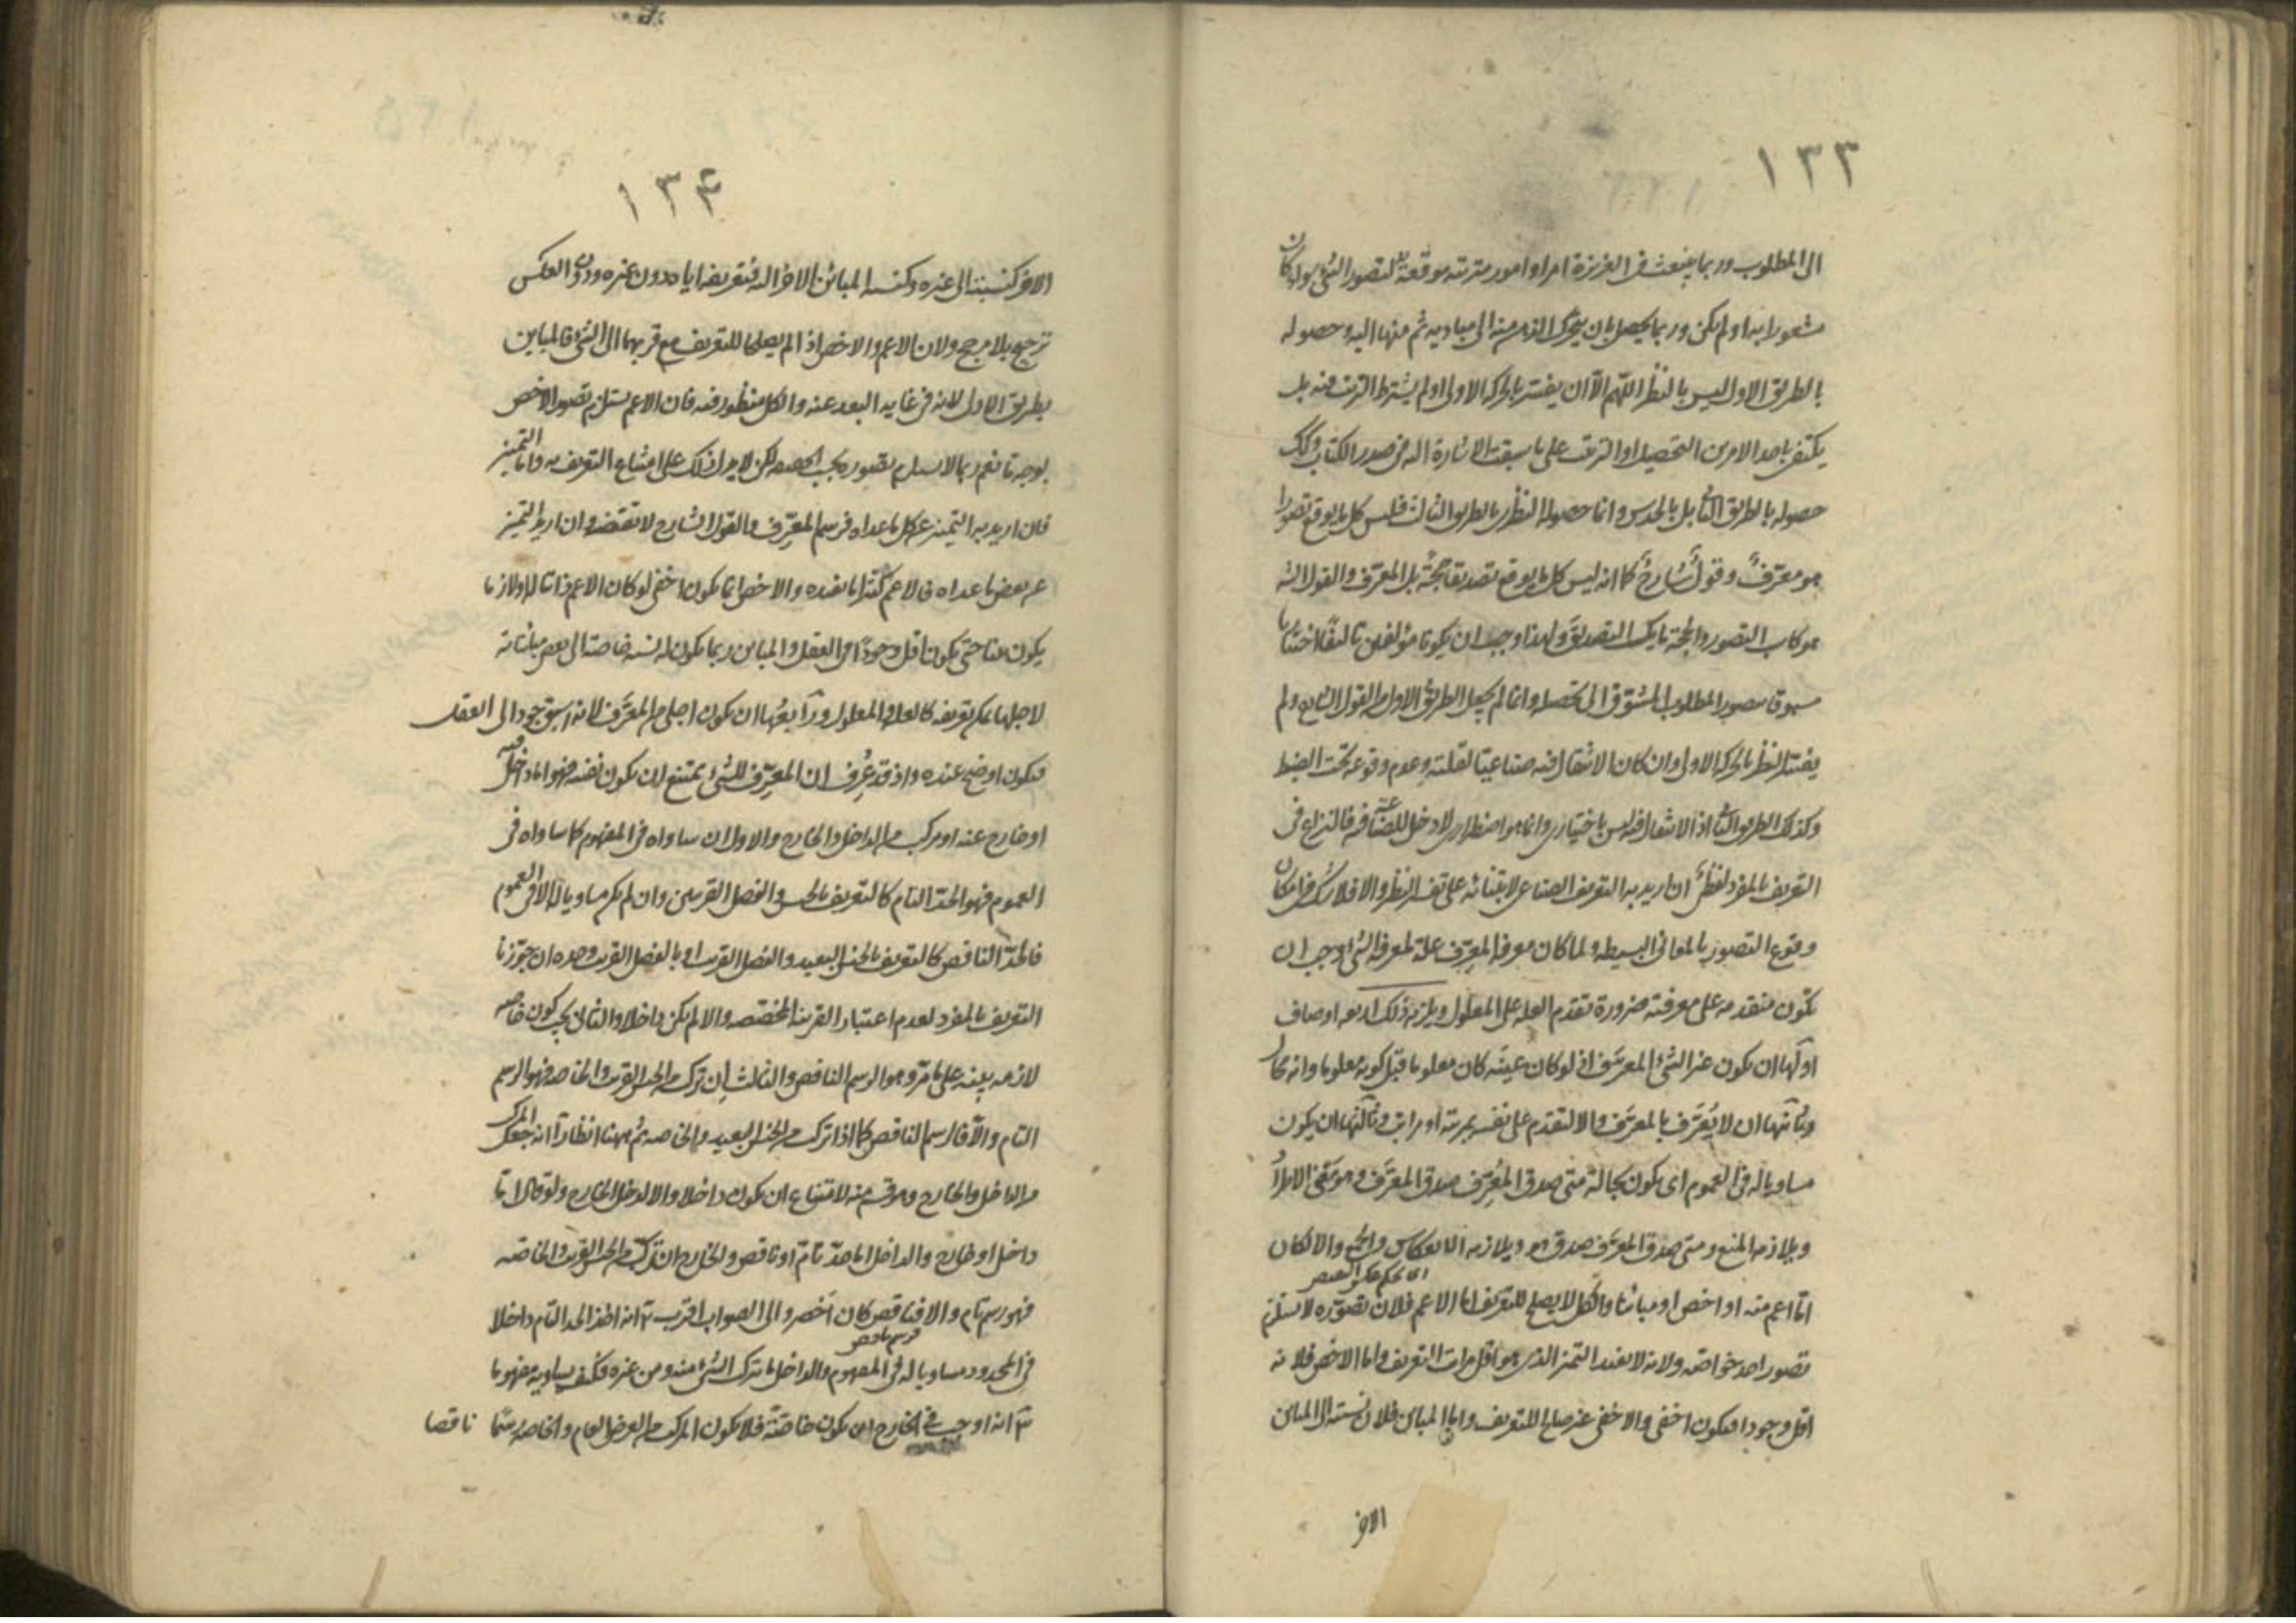 ١٣٣
الى المطلوب وربما ينبعث فى الغريزة امر او امور مترتبة موقعة لتصور الشئ سواء كان
مشعورا به او لم يكن وربما يحصل بان يتحرك الذهن منه الى مباديه ثم منها اليه وحصوله
بالطريق الاول ليس بالنظر اللهم الا ان يفسر بالحركة الاولى او لم يشترط الترتيب فيه بل
يكتفى باحد الامرين التحصيل او الترتيب على ما سبقت الاشارة اليه فى صدر الكتاب وكذلك
حصوله بالطريق الثانى بل بالحدس وانما حصوله بالنظر بالطريق الثالث فليس كل ما يوقع تصورا
هو معرف وقول شارح كما انه ليس كل ما يوقع تصديقا حجة بل المعرف والقول الشارح
هو كاسب التصور والحجة ما يكسب التصديق ولهذا وجب ان يكونا مؤلفين تاليفا اختياريا
مسبوقا بتصور المطلوب المشوق الى تحصيله وانما لم يجعل الطريق الاول من القول الشارح ولم
يفسر النظر بالحركة الاولى وان كان الانتقال فيه صناعيا لقلته وعدم وقوعه تحت الضبط
وكذلك الطريق الثانى اذ الانتقال فيه ليس باختيارى وانما هو اضطرارى لا دخل للصناعة فيه فالنزاع فى
التعريف بالمفرد لفظى ان اريد به التعريف الصناعى لابتنائه على تفسير النظر والا فلا شك فى امكان
وقوع التصور بالمعانى البسيطة ولما كان معرفة المعرف علة لمعرفة الشئ وجب ان
تكون متقدمة على معرفته ضرورة تقدم العلة على المعلول ويلزم ذلك اربعة اوصاف
اولها ان يكون غير الشئ المعرف اذ لو كان عينه كان معلوما قبل كونه معلوما وانه محال
وثانيها ان لا يعرف بالمعرف والا لتقدم على نفسه بمرتبة او مراتب وثالثها ان يكون
مساويا له فى العموم اى يكون بحالة متى صدق المعرف صدق المعرف وهو معنى الاطراد
ويلازمه المنع ومتى صدق المعرف صدق هو ويلازمه الانعكاس والجمع والا لكان
اى بحكم عكس النقيض
اما اعم منه او اخص او مباينا والكل لا يصلح للتعريف اما الاعم فلان تصوره لا يستلزم
تصور احد خواصه ولانه لا يفيد التميز الذى هو اقل مراتب التعريف واما الاخص فلانه
اقل وجودا فيكون اخفى والاخفى غير صالح للتعريف واما المباين فلان نسبته الى المباين
الاخر
١٣٤
الاخر كنسبته الى غيره وكنسبة المباين الاخر اليه فتعريفه اياه دون غيره ودون العكس
ترجيح بلا مرجح ولان الاعم والاخص اذا لم يصلحا للتعريف مع قربهما الى الشئ فالمباين
بطريق الاولى لانه فى غاية البعد عنه والكل منظور فيه فان الاعم يستلزم تصور الاخص
بوجه ما نعم ربما لا يستلزم تصوره بحسب الحقيقة لكن لا يدل ذلك على امتناع التعريف به واما التميز
فان اريد به التميز عن كل ما عداه فرسم المعرف والقول الشارح لا تقتضيه وان اريد التميز
عن بعض ما عداه فالاعم كثيرا ما يفيده والاخص انما يكون اخفى لو كان الاعم ذاتيا له او لازما
يكون بينا حتى يكون اقل وجودا فى العقل والمباين ربما يكون له نسبة خاصة الى بعض مبايناته
لاجلها يمكن تعريفه كالعلة والمعلول ورابعها ان يكون اجلى من المعرف لانه اسبق وجودا الى العقل
فيكون اوضح عنده واذ قد عرف ان المعرف للشئ يمتنع ان يكون نفسه فهو اما داخل فيه
او خارج عنه او مركب من الداخل والخارج والاول ان ساواه فى المفهوم كما ساواه فى
العموم فهو الحد التام كالتعريف بالجنس والفصل القريبين وان لم يكن مساويا له الا فى العموم
فالحد الناقص كالتعريف بالجنس البعيد والفصل القريب او بالفصل القريب وحده ان جوزنا
التعريف بالمفرد لعدم اعتبار القرينة المخصصة والا لم يكن داخلا والثانى يجب كون خاصة
لازمة بينة على ما مر وهو الرسم الناقص والثالث ان تركب من الجنس القريب والخاصة فهو الرسم
التام والا فالرسم الناقص كما اذا تركب من الجنس البعيد والخاصة ثم ههنا انظار ا انه جعل المركب
من الداخل والخارج قسما منه لامتناع ان يكون داخلا والا لدخل الخارج ولو قال اما
داخل او خارج والداخل اما حد تام او ناقص والخارج ان تركب من الجنس القريب والخاصة
فهو رسم تام والا فناقص كان اخصر والى الصواب اقرب ٢ انه اخذ الحد التام داخلا
فرسم ناقص
فى المحدود مساويا له فى المفهوم والداخل ما تركب الشئ منه ومن غيره فكيف يساويه مفهوما
٣ انه اوجب فى الخارج ان يكون خاصة فلا يكون المركب من العرض العام والخاصة رسما ناقصا